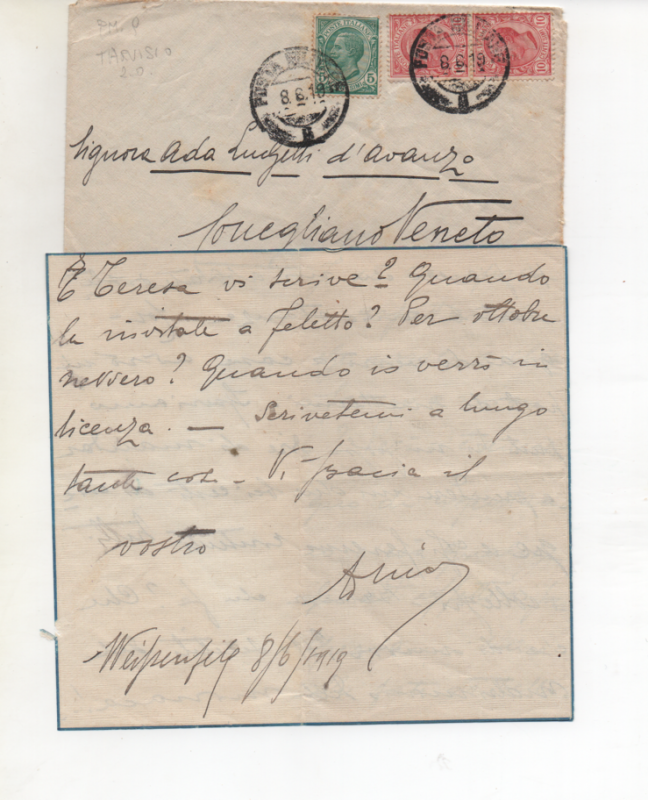 P.M. 9
TARVISIO
2.0.
POSTE ITALIANE
5
10
10
POSTA MILITARE
8.6.19
POSTA MILITARE
8.6.19
Signora Ada Luchetti d'Avanzo
Conegliano Veneto
E Teresa vi scrive? Quando
la rivortate a Feletto? Per ottobre
nevvero? Quando io verrò in
licenza. — Scrivetemi a lungo
tante cose - Vi bacia il
vostro
Weissenfels 8/6/1919